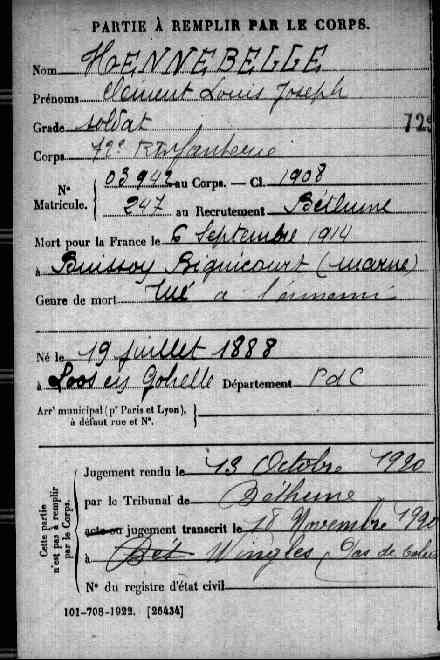 PARTIE À REMPLIR PAR LE CORPS.
Nom HENNEBELLE
Prénoms Clément Louis Joseph
Grade soldat
Corps 72e Rt d'Infanterie
N° Matricule. 03942 au Corps. — Cl. 1908
247 au Recrutement Béthune
Mort pour la France le 6 Septembre 1914
à Buissoy Biguicourt (Marne)
Genre de mort Tué à l'ennemi
Né le 19 juillet 1888
à Loos en Gohelle Département PdC
Arr' municipal (p' Paris et Lyon),
à défaut rue et N°.
Cette partie n'est pas à remplir par le Corps.
Jugement rendu le 13 Octobre 1920
par le Tribunal de Béthune
acte ou jugement transcrit le 18 Novembre 1920
à Bét Wingles, Pas de Calais
N° du registre d'état civil
101-708-1922. [26434]